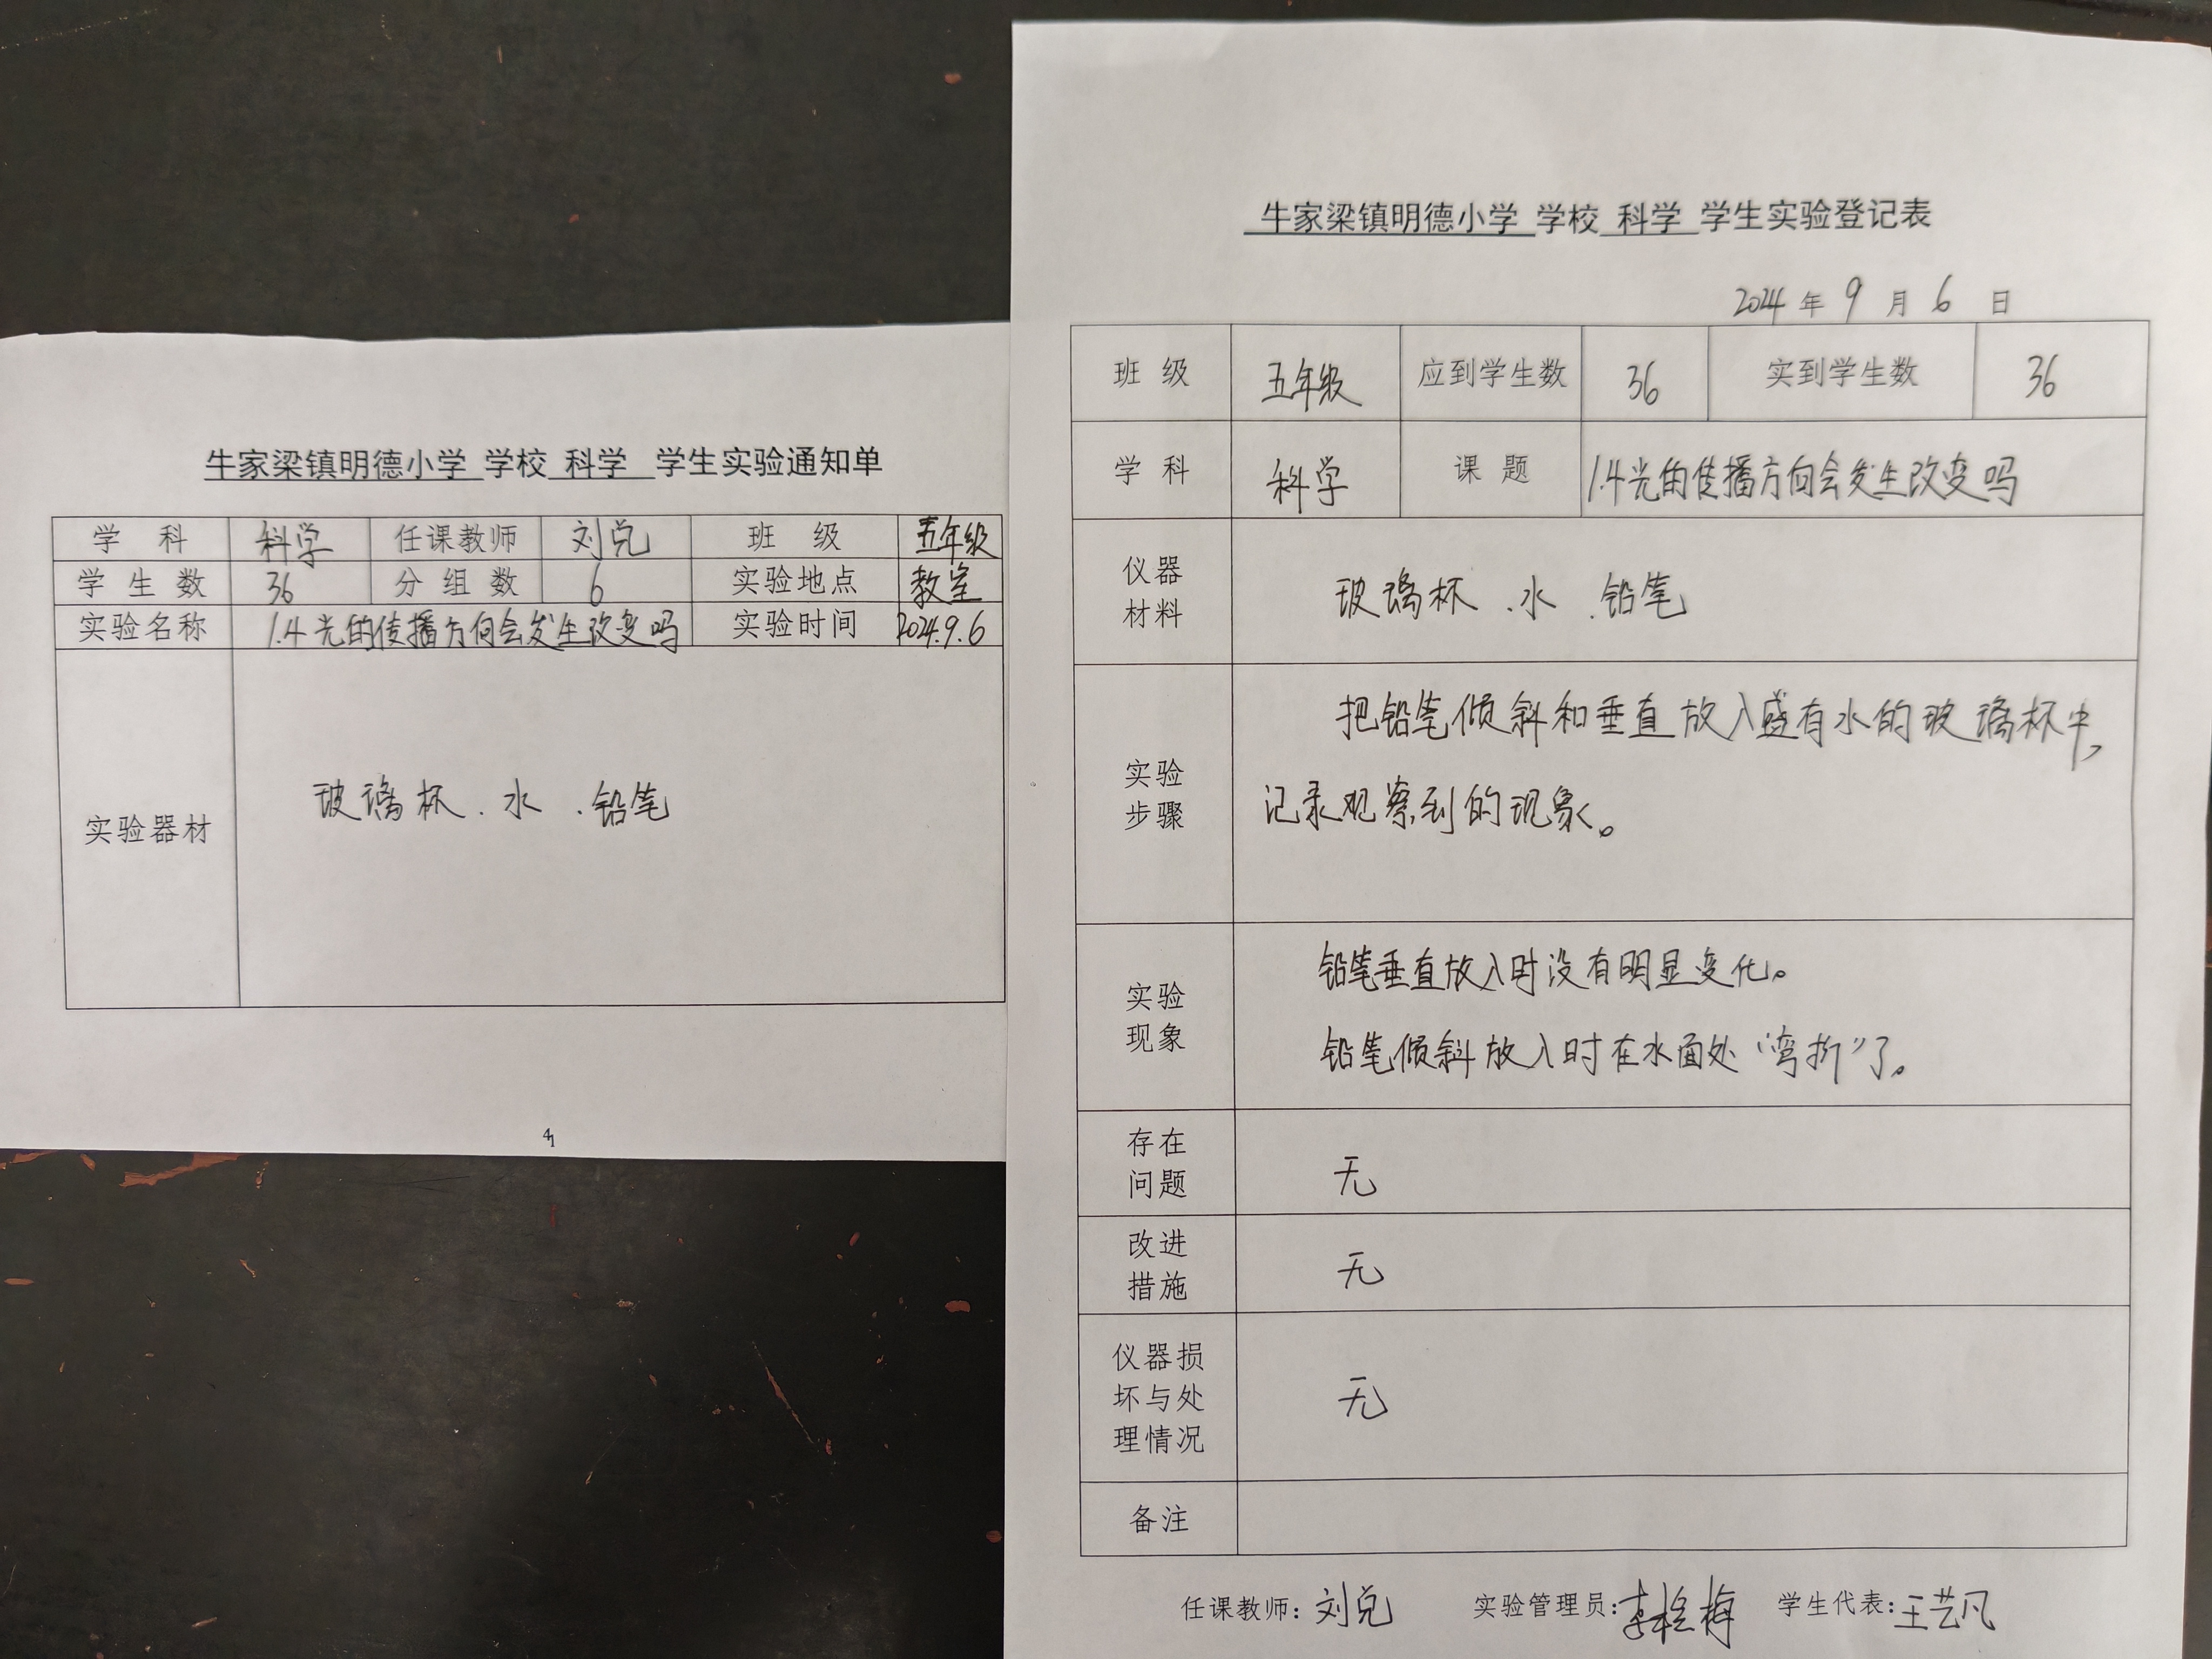 牛家梁镇明德小学 学校 科学 学生实验通知单
学 科 科学 任课教师 刘兑 班 级 五年级
学 生 数 36 分 组 数 6 实验地点 教室
实验名称 1.4光的传播方向会发生改变吗 实验时间 2024.9.6
实验器材 玻璃杯、水、铅笔
牛家梁镇明德小学 学校 科学 学生实验登记表
2024 年 9 月 6 日
班 级 五年级 应到学生数 36 实到学生数 36
学 科 科学 课 题 1.4光的传播方向会发生改变吗
仪器
材料
玻璃杯、水、铅笔
实验
步骤
把铅笔倾斜和垂直放入盛有水的玻璃杯中,
记录观察到的现象。
实验
现象
铅笔垂直放入时没有明显变化。
铅笔倾斜放入时在水面处“弯折”了。
存在
问题
无
改进
措施
无
仪器损
坏与处
理情况
无
备注
任课教师:刘兑 实验管理员:李 梅 学生代表:王艺凡